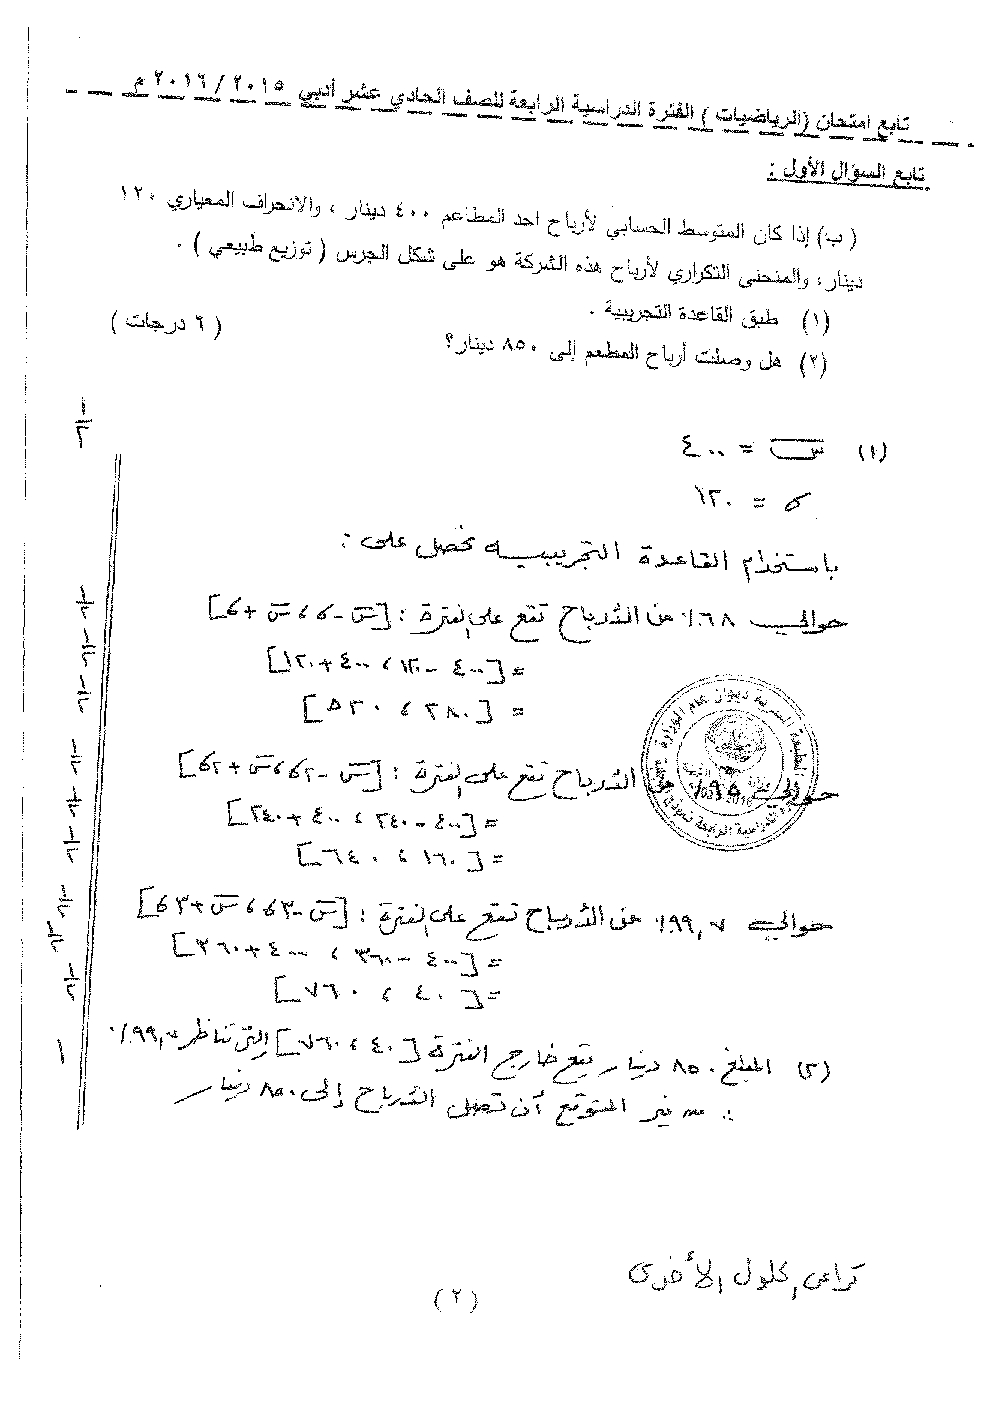 تابع امتحان (الرياضيات) الفترة الدراسية الرابعة للصف الحادي عشر أدبي ٢٠١٥ / ٢٠١٦ م
تابع السؤال الأول :
( ب) إذا كان المتوسط الحسابي لأرباح احد المطاعم ٤٠٠ دينار ، والانحراف المعياري ١٢٠
دينار، والمنحنى التكراري لأرباح هذه الشركة هو على شكل الجرس ( توزيع طبيعي ) .
(١) طبق القاعدة التجريبية .
( ٦ درجات )
(٢) هل وصلت أرباح المطعم إلى ٨٥٠ دينار؟
(١) س̄ = ٤٠٠
σ = ١٢٠
باستخدام القاعدة التجريبية نحصل على :
حوالي ٦٨٪ من الأرباح تقع على الفترة : [س̄ - σ ، س̄ + σ]
= [٤٠٠ - ١٢٠ ، ٤٠٠ + ١٢٠]
= [٢٨٠ ، ٥٢٠]
حوالي ٩٥٪ من الأرباح تقع على الفترة : [س̄ - ٢σ ، س̄ + ٢σ]
= [٤٠٠ - ٢٤٠ ، ٤٠٠ + ٢٤٠]
= [١٦٠ ، ٦٤٠]
حوالي ٩٩,٧٪ من الأرباح تقع على الفترة : [س̄ - ٣σ ، س̄ + ٣σ]
= [٤٠٠ - ٣٦٠ ، ٤٠٠ + ٣٦٠]
= [٤٠ ، ٧٦٠]
(٢) المبلغ ٨٥٠ دينار يقع خارج الفترة [٤٠ ، ٧٦٠] التي تناظر ٩٩,٧٪
∴ من غير المتوقع أن تصل الأرباح إلى ٨٥٠ دينار
تراعى الحلول الأخرى
(٢)